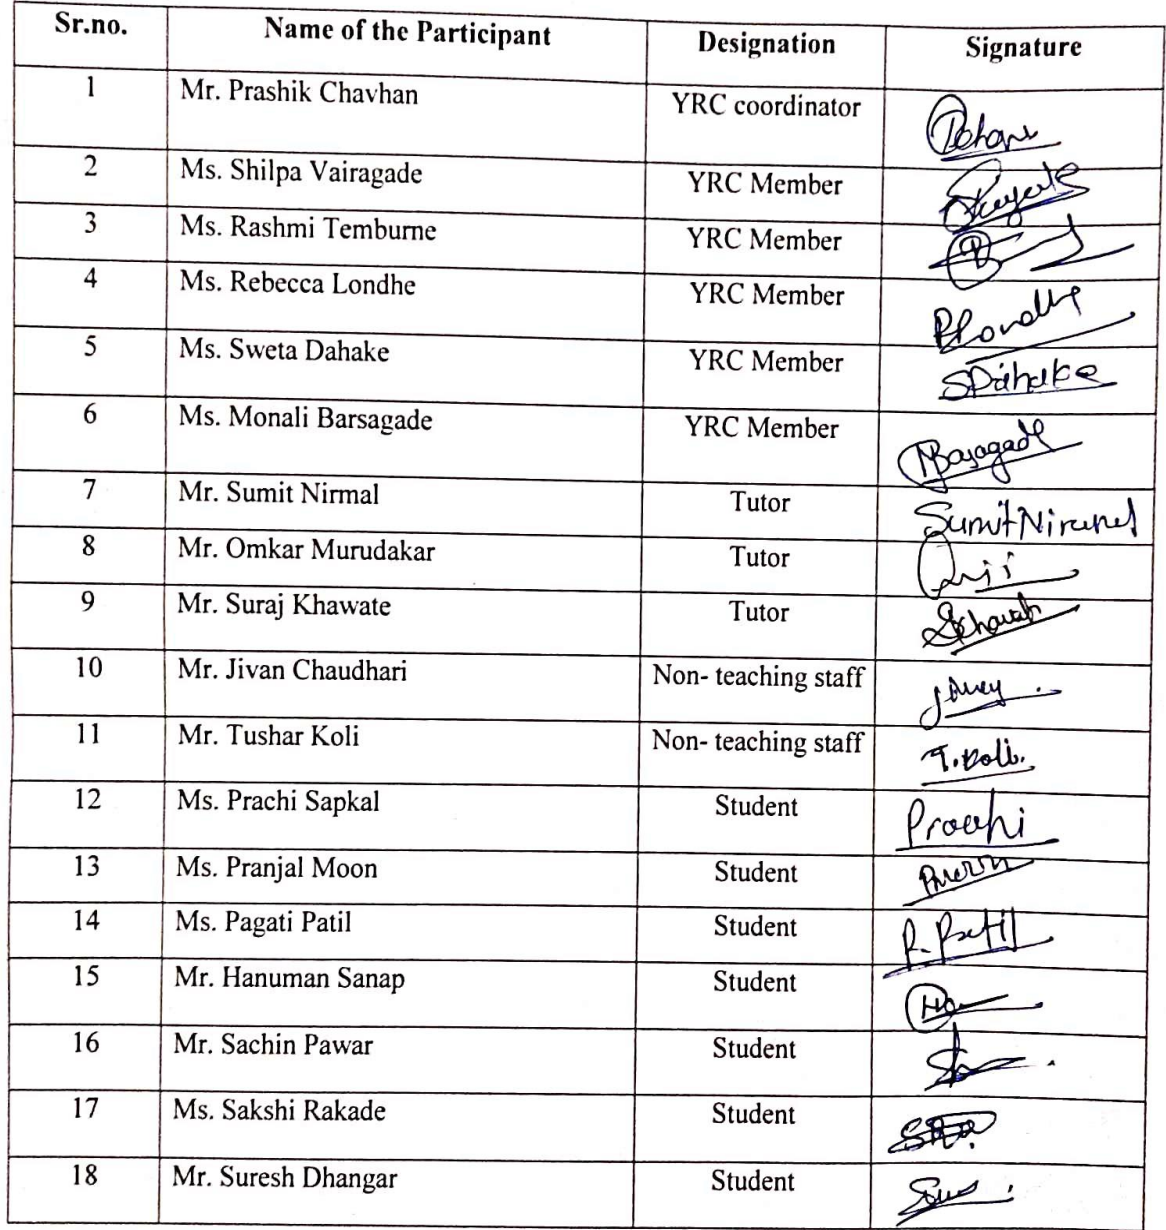 Sr.no. Name of the Participant Designation Signature
1 Mr. Prashik Chavhan YRC coordinator
2 Ms. Shilpa Vairagade YRC Member
3 Ms. Rashmi Temburne YRC Member
4 Ms. Rebecca Londhe YRC Member
5 Ms. Sweta Dahake YRC Member SDahake
6 Ms. Monali Barsagade YRC Member
7 Mr. Sumit Nirmal Tutor Sumit Nirmal
8 Mr. Omkar Murudakar Tutor
9 Mr. Suraj Khawate Tutor
10 Mr. Jivan Chaudhari Non- teaching staff
11 Mr. Tushar Koli Non- teaching staff T.Koli.
12 Ms. Prachi Sapkal Student Prachi
13 Ms. Pranjal Moon Student
14 Ms. Pagati Patil Student P.Patil
15 Mr. Hanuman Sanap Student
16 Mr. Sachin Pawar Student
17 Ms. Sakshi Rakade Student
18 Mr. Suresh Dhangar Student